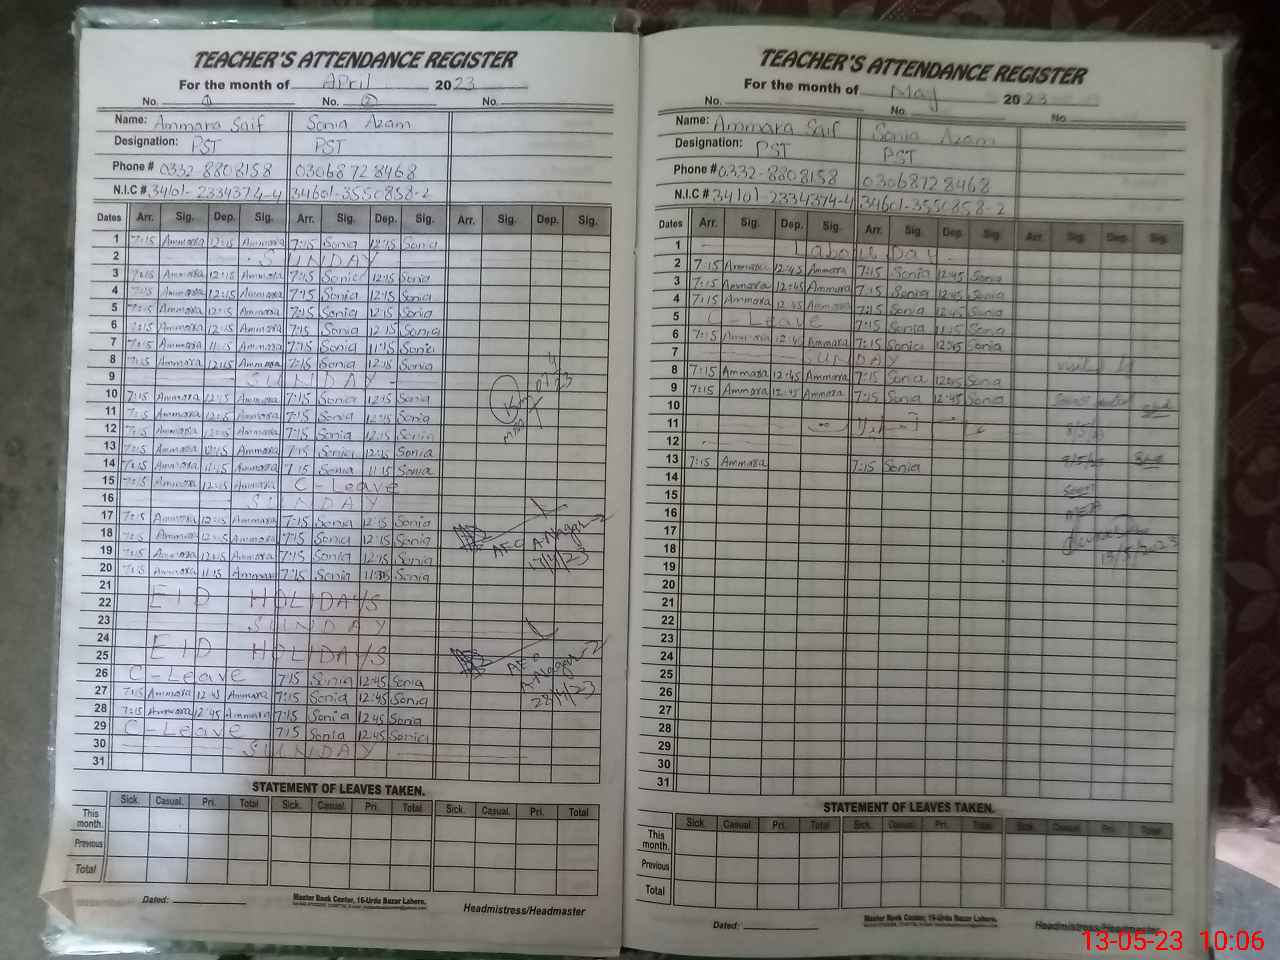 TEACHER'S ATTENDANCE REGISTER
For the month of April 2023
No. 1 No. 2 No.
Name: Ammara Saif Sonia Azam
Designation: PST PST
Phone # 0332-8808158 03068728468
N.I.C # 34101-2334374-4 34601-3550858-2
Dates Arr. Sig. Dep. Sig. Arr. Sig. Dep. Sig. Arr. Sig. Dep. Sig.
1 7:15 Ammara 12:15 Ammara 7:15 Sonia 12:15 Sonia
2 SUNDAY
3 7:15 Ammara 12:15 Ammara 7:15 Sonia 12:15 Sonia
4 7:15 Ammara 12:15 Ammara 7:15 Sonia 12:15 Sonia
5 7:15 Ammara 12:15 Ammara 7:15 Sonia 12:15 Sonia
6 7:15 Ammara 12:15 Ammara 7:15 Sonia 12:15 Sonia
7 7:15 Ammara 11:15 Ammara 7:15 Sonia 11:15 Sonia
8 7:15 Ammara 12:15 Ammara 7:15 Sonia 12:15 Sonia
9 SUNDAY
10 7:15 Ammara 12:15 Ammara 7:15 Sonia 12:15 Sonia
11 7:15 Ammara 12:15 Ammara 7:15 Sonia 12:15 Sonia
12 7:15 Ammara 12:15 Ammara 7:15 Sonia 12:15 Sonia
13 7:15 Ammara 12:15 Ammara 7:15 Sonia 12:15 Sonia
14 7:15 Ammara 11:15 Ammara 7:15 Sonia 11:15 Sonia
15 7:15 Ammara 12:15 Ammara C-Leave
16 SUNDAY
17 7:15 Ammara 12:15 Ammara 7:15 Sonia 12:15 Sonia
18 7:15 Ammara 12:15 Ammara 7:15 Sonia 12:15 Sonia
19 7:15 Ammara 12:15 Ammara 7:15 Sonia 12:15 Sonia
20 7:15 Ammara 11:15 Ammara 7:15 Sonia 11:15 Sonia
21
22 EID HOLIDAYS
23 SUNDAY
24
25 EID HOLIDAYS
26 C-Leave 7:15 Sonia 12:45 Sonia
27 7:15 Ammara 12:45 Ammara 7:15 Sonia 12:45 Sonia
28 7:15 Ammara 12:45 Ammara 7:15 Sonia 12:45 Sonia
29 C-Leave 7:15 Sonia 12:45 Sonia
30 SUNDAY
31
A-Nagar-2
17/4/23
A-Nagar-2
28/4/23
STATEMENT OF LEAVES TAKEN.
Sick. Casual. Pri. Total Sick. Casual. Pri. Total Sick. Casual. Pri. Total
This month.
Previous
Total
Dated:
Master Book Center, 16-Urdu Bazar Lahore.
Headmistress/Headmaster
TEACHER'S ATTENDANCE REGISTER
For the month of May 2023
No. No. No
Name: Ammara Saif Sonia Azam
Designation: PST PST
Phone # 0332-8808158 03068728468
N.I.C # 34101-2334374-4 34601-3550858-2
Dates Arr. Sig. Dep. Sig. Arr. Sig. Dep. Sig. Arr. Sig. Dep. Sig.
1 Labour Day
2 7:15 Ammara 12:45 Ammara 7:15 Sonia 12:45 Sonia
3 7:15 Ammara 12:45 Ammara 7:15 Sonia 12:45 Sonia
4 7:15 Ammara 12:45 Ammara 7:15 Sonia 12:45 Sonia
5 C-Leave 7:15 Sonia 11:15 Sonia
6 7:15 Ammara 12:45 Ammara 7:15 Sonia 12:45 Sonia
7 SUNDAY
8 7:15 Ammara 12:45 Ammara 7:15 Sonia 12:45 Sonia
9 7:15 Ammara 12:45 Ammara 7:15 Sonia 12:45 Sonia
10
11
12
13 7:15 Ammara 7:15 Sonia
14
15
16
17
18
19
20
21
22
23
24
25
26
27
28
29
30
31
13/5/2023
STATEMENT OF LEAVES TAKEN.
Sick. Casual. Pri. Total Sick. Casual. Pri. Total Sick. Casual. Pri. Total
This month.
Previous
Total
Dated:
Master Book Center, 16-Urdu Bazar Lahore.
Headmistress/Headmaster
13-05-23 10:06